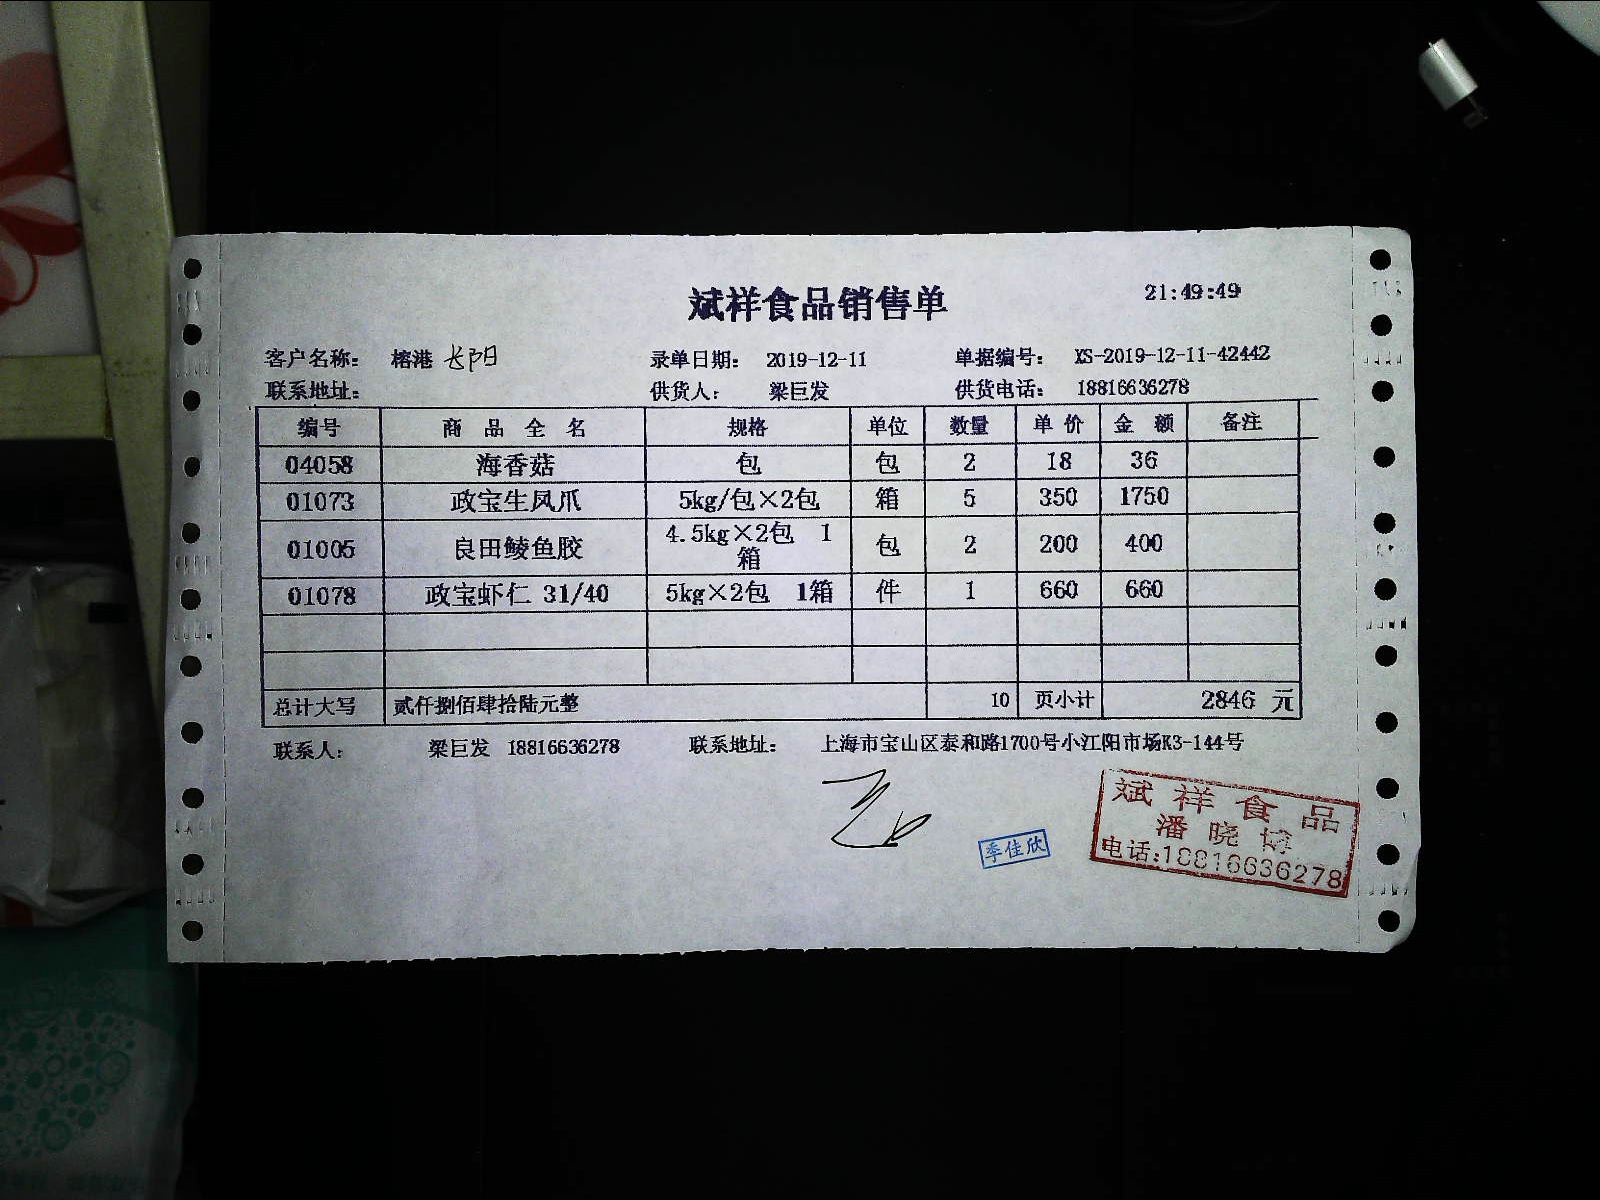 斌祥食品销售单 21:49:49
客户名称: 榕港 长阳 录单日期: 2019-12-11 单据编号: XS-2019-12-11-42442
联系地址: 供货人: 梁巨发 供货电话: 18816636278
编号 商品全名 规格 单位 数量 单价 金额 备注
04058 海香菇 包 包 2 18 36
01073 政宝生凤爪 5kg/包×2包 箱 5 350 1750
01005 良田鲮鱼胶 4.5kg×2包 1箱 包 2 200 400
01078 政宝虾仁 31/40 5kg×2包 1箱 件 1 660 660
总计大写 贰仟捌佰肆拾陆元整 10 页小计 2846 元
联系人: 梁巨发 18816636278 联系地址: 上海市宝山区泰和路1700号小江阳市场K3-144号
斌祥食品
潘晓博
电话:18816636278
季佳欣